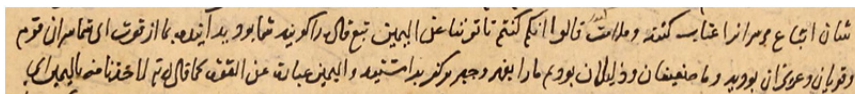 شان اتباع مر مهرانرا عتاب کنند و ملامت قالوا انکم کنتم تاتوننا عن الیمین تبع قال را کویند شما بودید آینده بما از قوت ای شما مهران قوم
و قویان و عزیزان بودید و ما ضعیفان و ذلیلان بودیم ما را بقهر و جبر بداشتید و الیمین عبارت عن القوة کما قال لاخذنا منه بالیمین ای